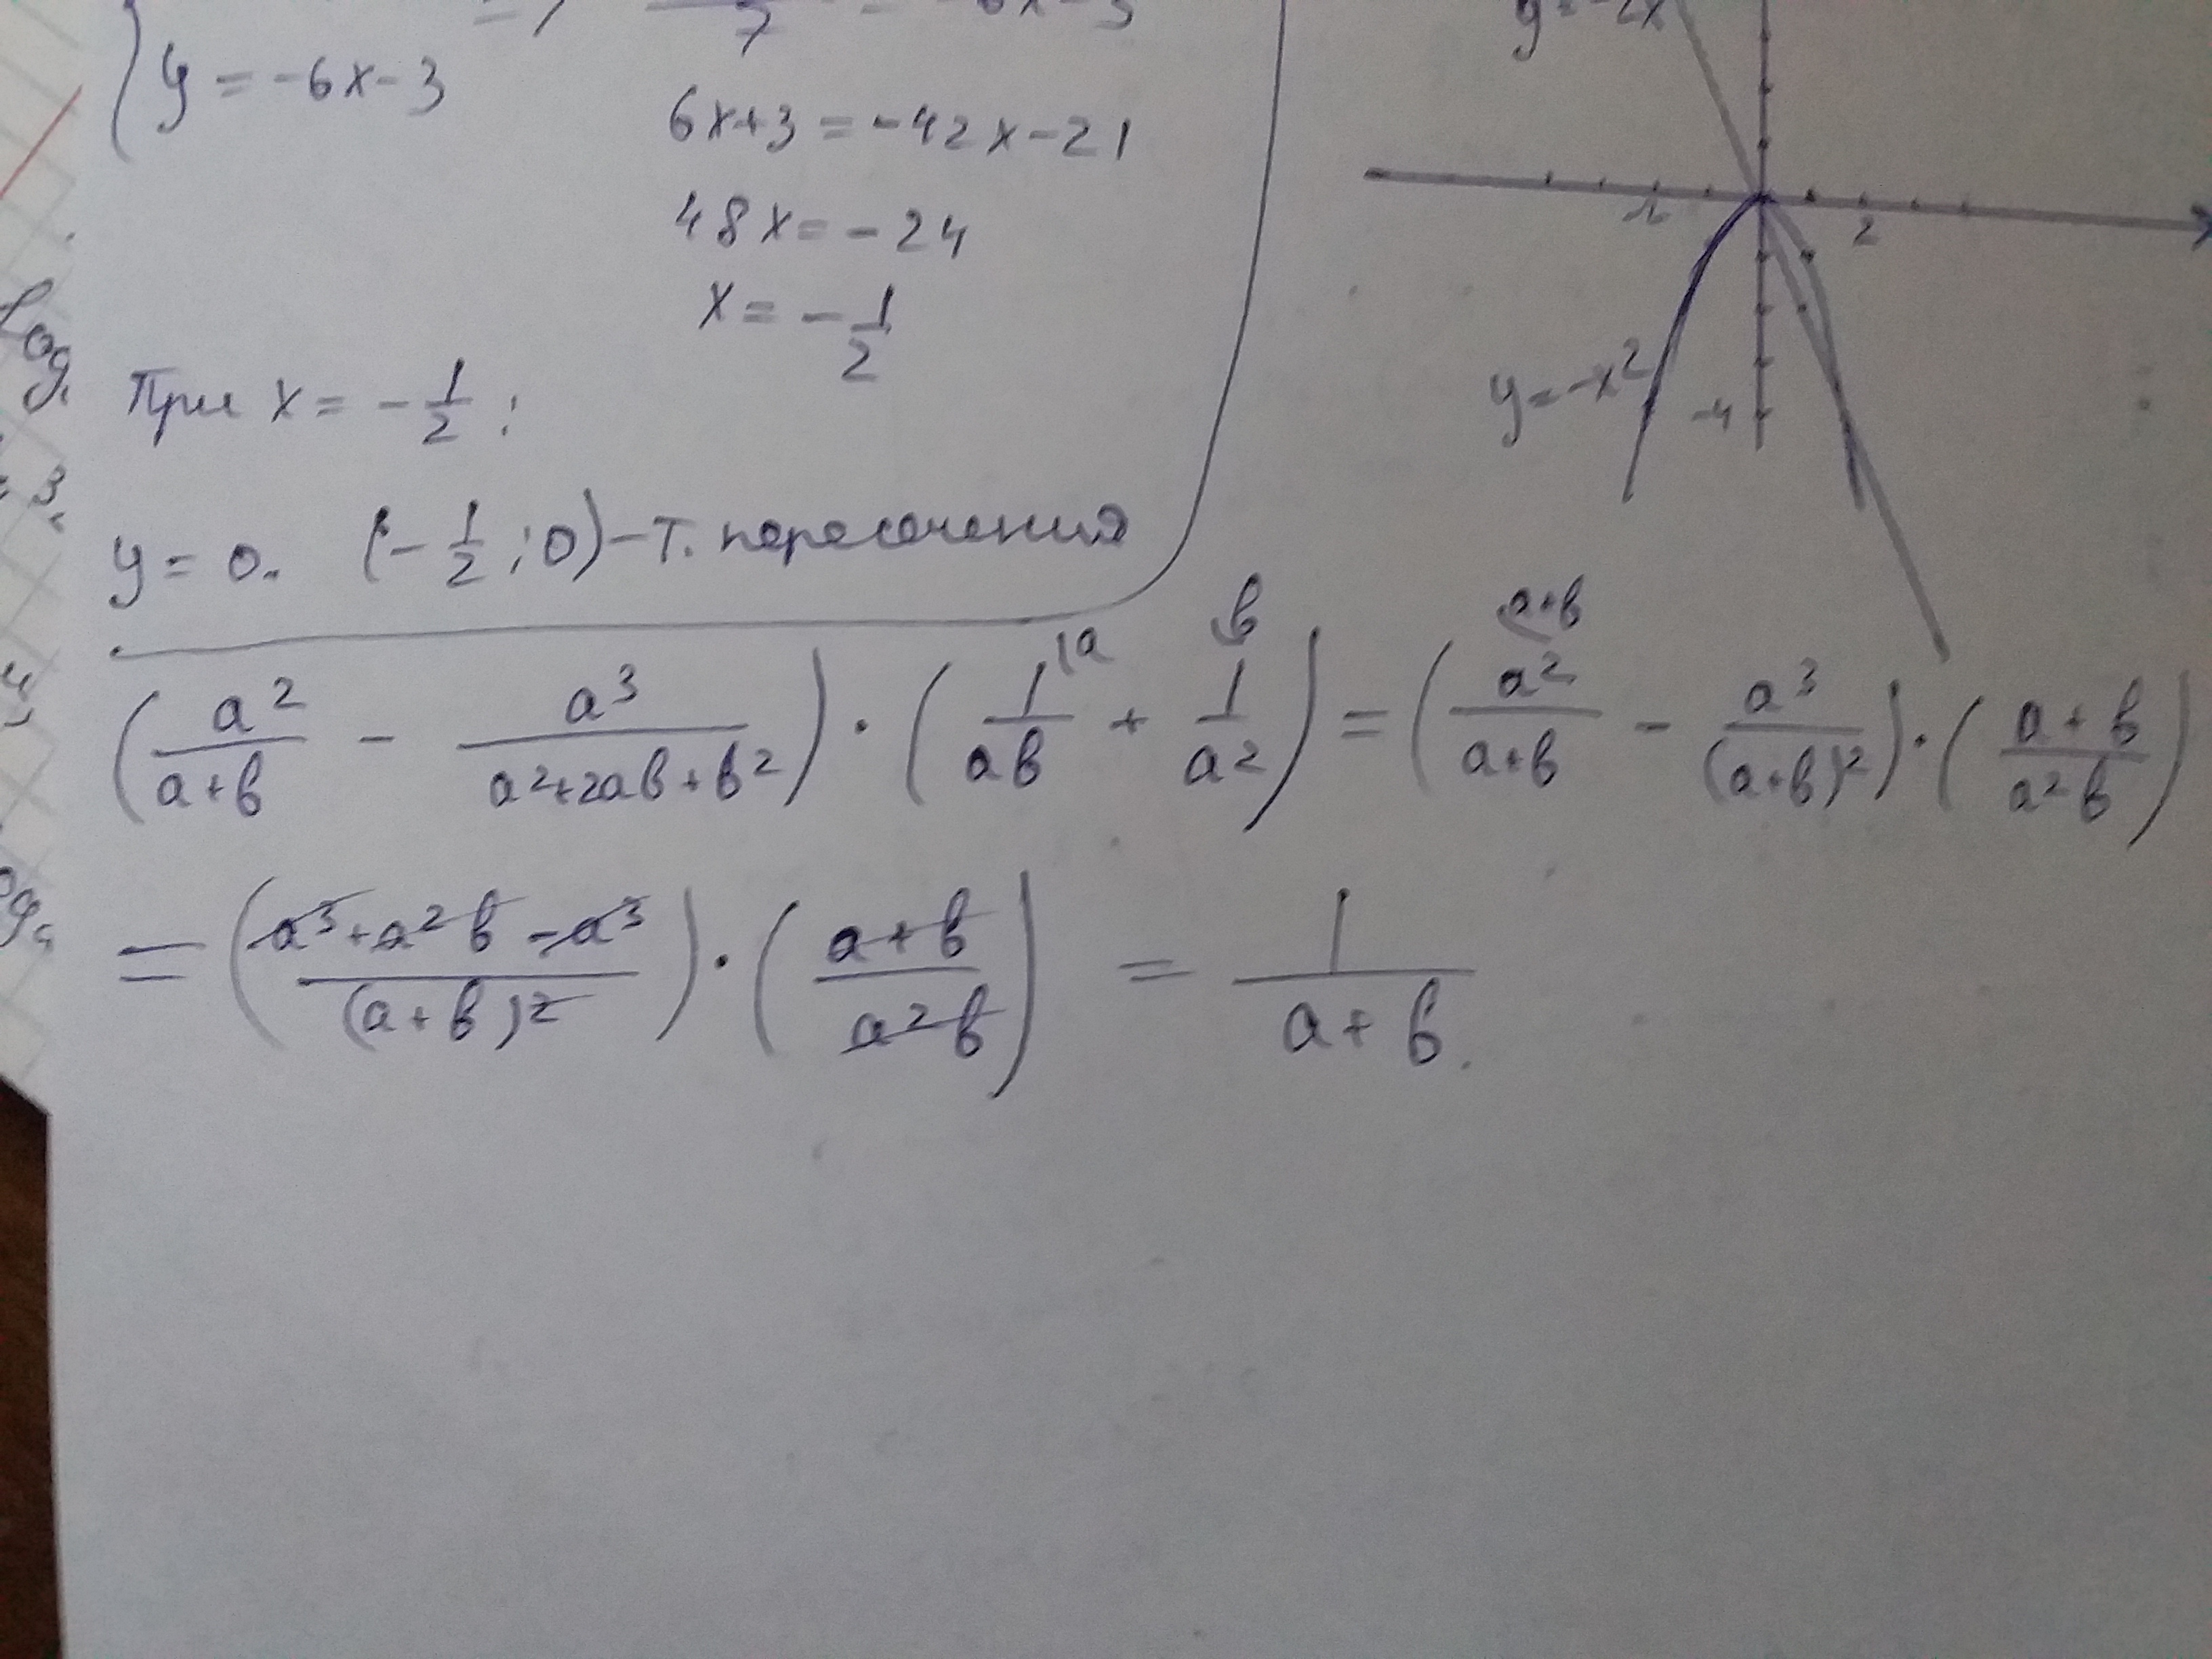 y = -6x-3
7
6x+3 = -42x-21
48x = -24
x = -1/2
При x = -1/2 :
y = 0. (-1/2 ; 0) - т. пересечения
y = -2x
-2 2
y = -x²
-4
(a²/(a+b) - a³/(a²+2ab+b²)) · (1/(ab) |a + 1/a² b) = (a²/(a+b) a+b - a³/(a+b)²) · ((a+b)/(a²b))
= ((a³+a²b-a³)/(a+b)²) · ((a+b)/(a²b)) = 1/(a+b).